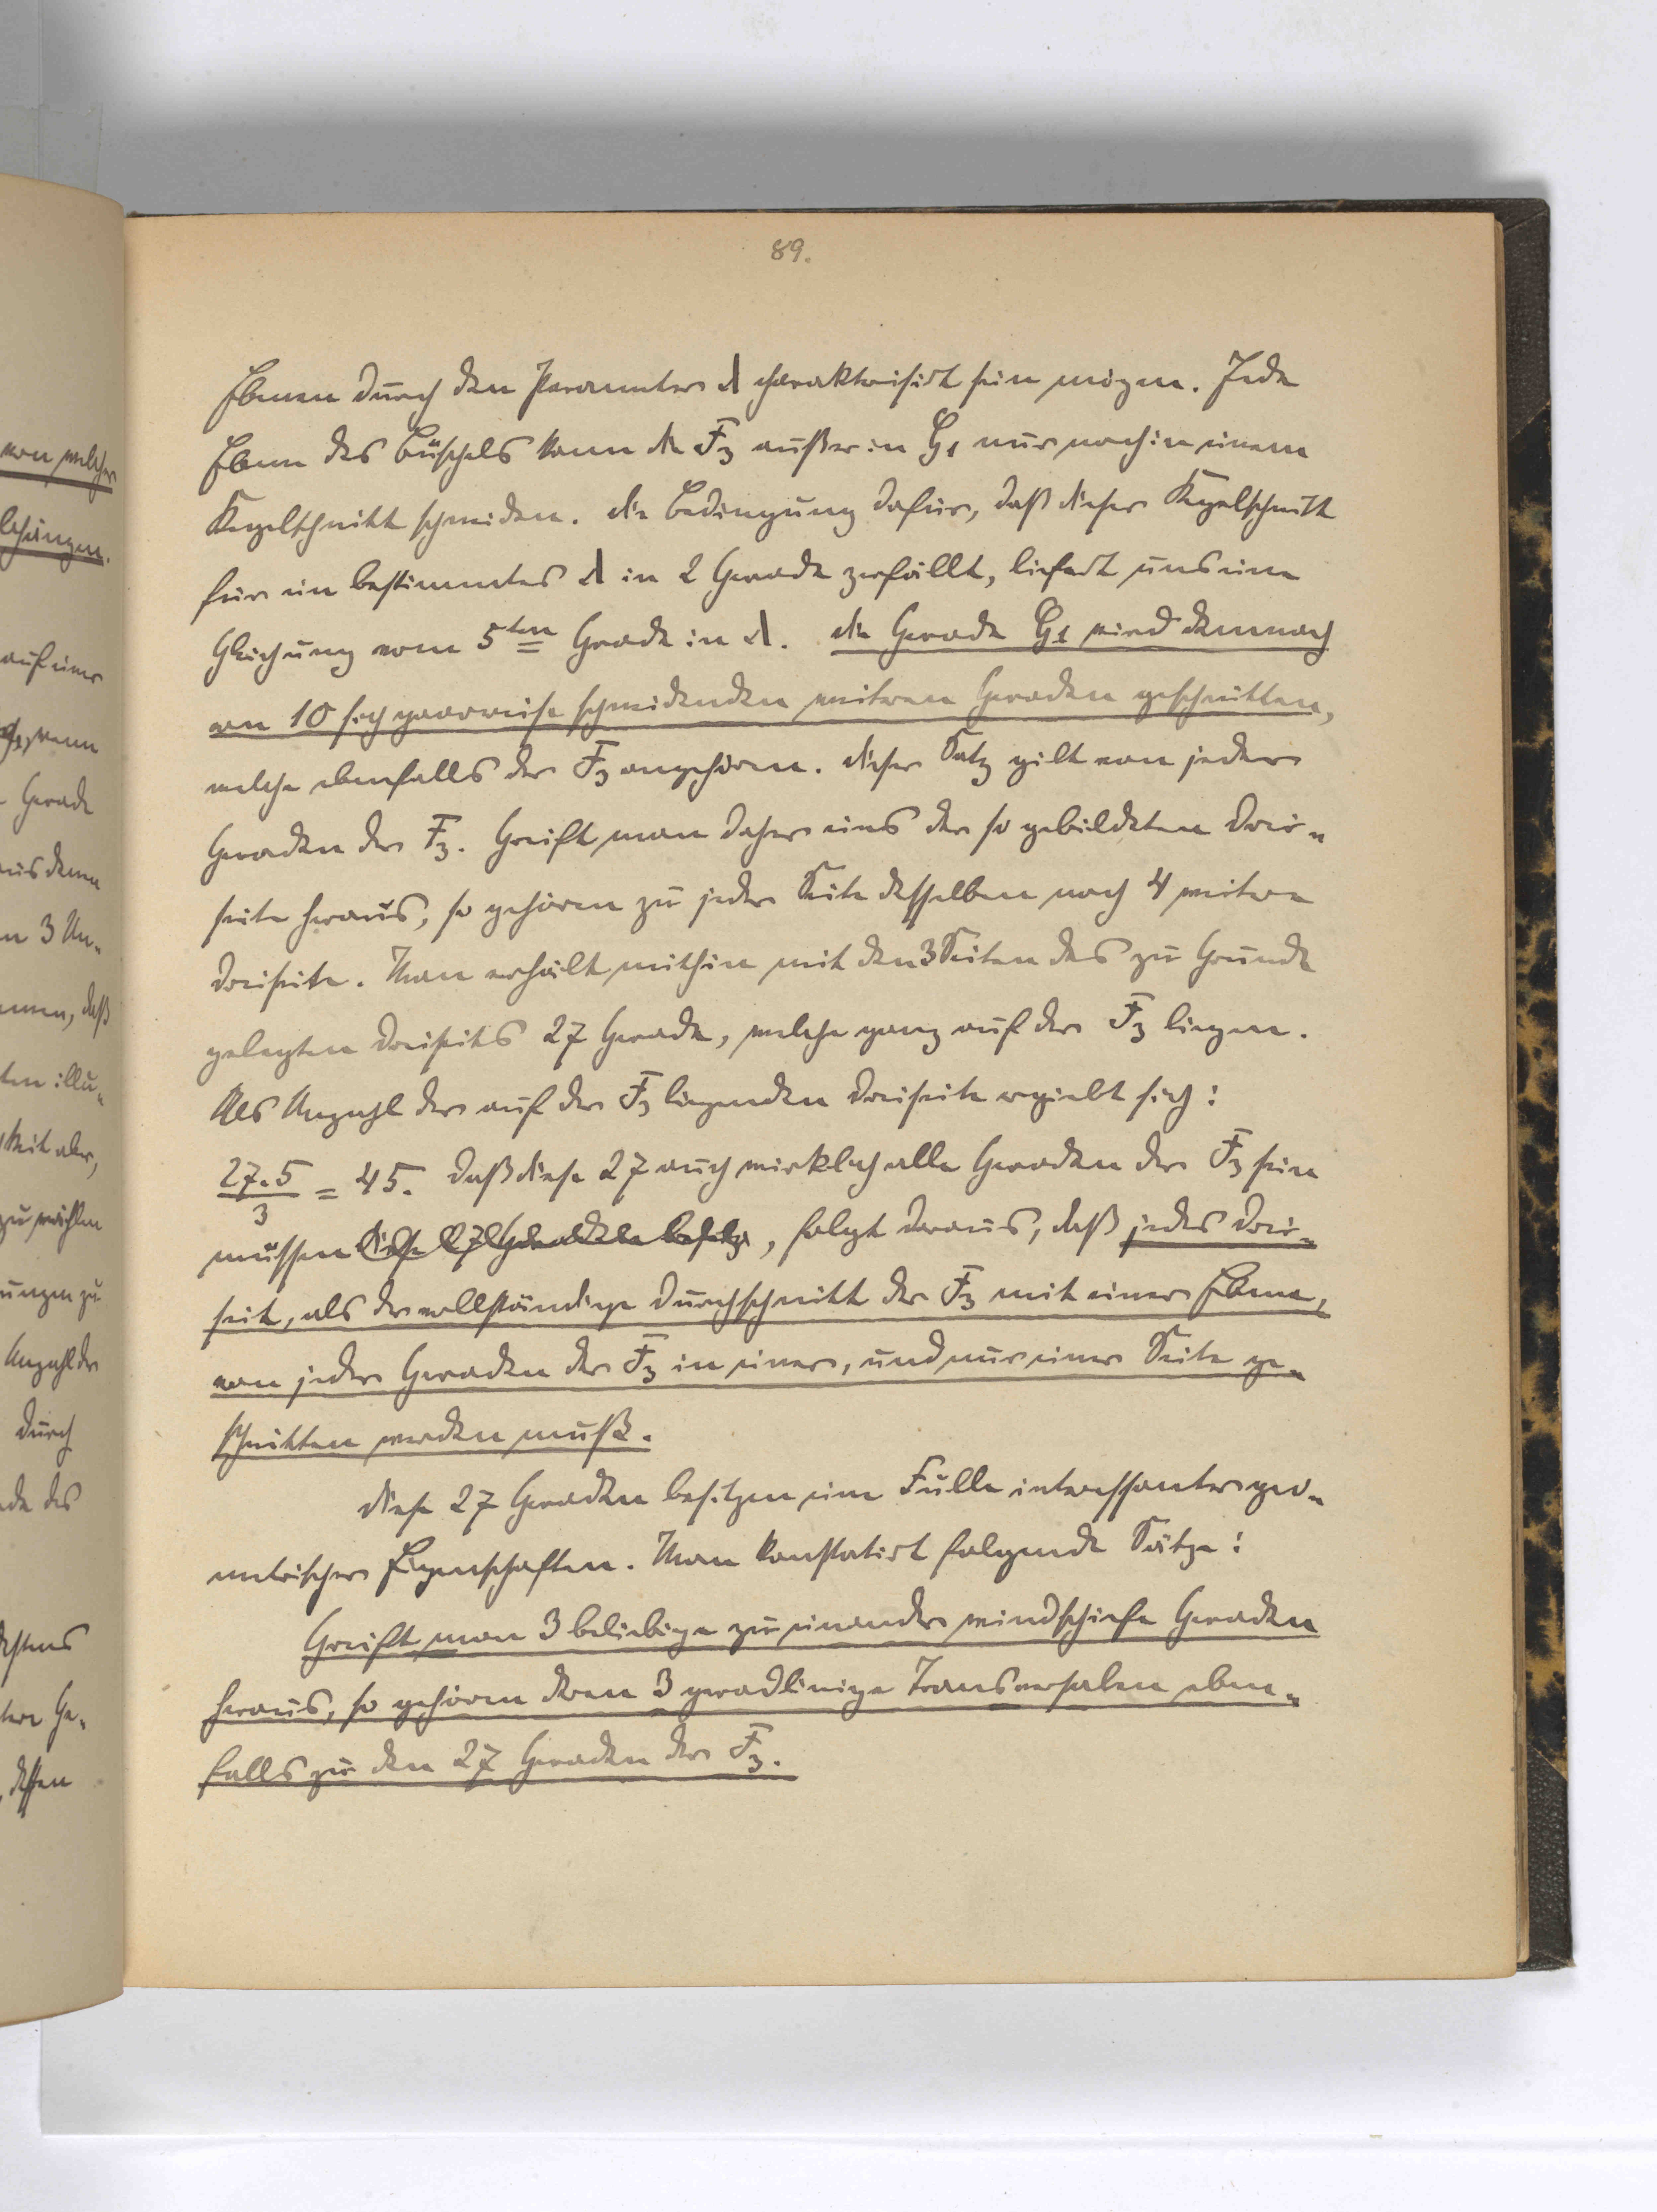 89.
Ebenen durch den Parameter λ charakterisirt sein mögen. Jede
Ebene des Büschels kann die F₃ außer in G₁ nur noch in einem
Kegelschnitt schneiden. Die Bedingung dafür, daß dieser Kegelschnitt
für ein bestimmtes λ in 2 Gerade zerfällt, liefert uns eine
Gleichung vom 5ten Grade in λ. Die Gerade G₁ wird demnach
von 10 sich paarweise schneidenden weiteren Geraden geschnitten,
welche ebenfalls der F₃ angehören. Dieser Satz gilt von jeder
Geraden der F₃. Greift man daher eins der so gebildeten Drei-
seite heraus, so gehören zu jeder Seite desselben noch 4 weitere
Dreiseite. Man erhält mithin mit den 3 Seiten des zu Grunde
gelegten Dreiseits 27 Gerade, welche ganz auf der F₃ liegen.
Als Anzahl der auf der F₃ liegenden Dreiseite ergiebt sich:
27·5/3 = 45. Daß diese 27 auch wirklich alle Geraden der F₃ sein
müssen, folgt daraus, daß jedes Drei-
seit, als der vollständige Durchschnitt der F₃ mit einer Ebene,
von jeder Geraden der F₃ in einer, und nur einer Seite ge-
schnitten werden muß.
Diese 27 Geraden besitzen eine Fülle interessanter geo-
metrischer Eigenschaften. Man konstatirt folgende Sätze:
Greift man 3 beliebige zu einander windschiefe Geraden
heraus, so gehören deren 3 geradlinige Transversalen eben-
falls zu den 27 Geraden der F₃.
von welcher
auf einer
Gerade
aus denen
n 3 Un-
daß
zu wählen
Anzahl der
durch
des
dessen